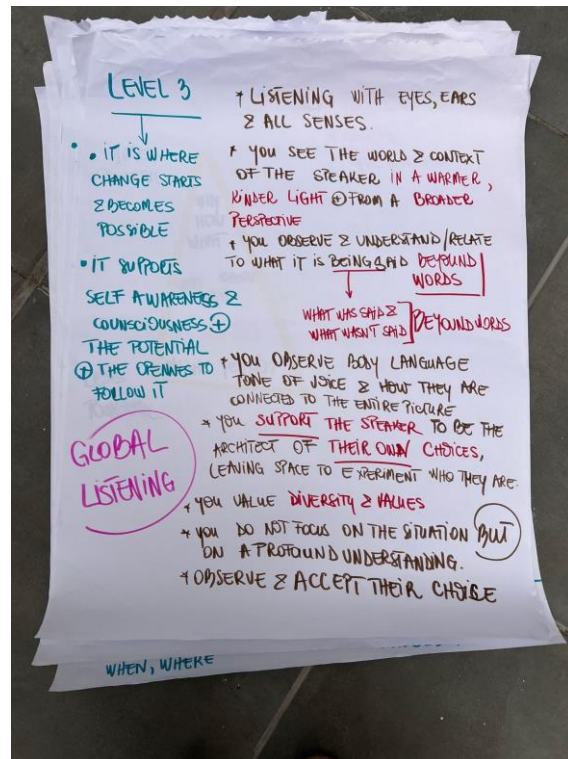 LEVEL 3
• IT IS WHERE
CHANGE STARTS
& BECOMES
POSSIBLE
• IT SUPPORTS
SELF AWARENESS &
COUNSCIOUSNESS ⊕
THE POTENTIAL
⊕ THE OPENNES TO
FOLLOW IT
GLOBAL
LISTENING
* LISTENING WITH EYES, EARS
& ALL SENSES.
* YOU SEE THE WORLD & CONTEXT
OF THE SPEAKER IN A WARMER,
KINDER LIGHT ⊕ FROM A BROADER
PERSPECTIVE
* YOU OBSERVE & UNDERSTAND/RELATE
TO WHAT IT IS BEING SAID BEYOUND
WORDS
WHAT WAS SAID &
WHAT WASN'T SAID] BEYOUND WORDS
* YOU OBSERVE BODY LANGUAGE
TONE OF VOICE & HOW THEY ARE
CONNECTED TO THE ENTIRE PICTURE
* YOU SUPPORT THE SPEAKER TO BE THE
ARCHITECT OF THEIR OWN CHOICES,
LEAVING SPACE TO EXPERIMENT WHO THEY ARE.
* YOU VALUE DIVERSITY & VALUES
* YOU DO NOT FOCUS ON THE SITUATION BUT
ON A PROFOUND UNDERSTANDING.
* OBSERVE & ACCEPT THEIR CHOICE
WHEN, WHERE